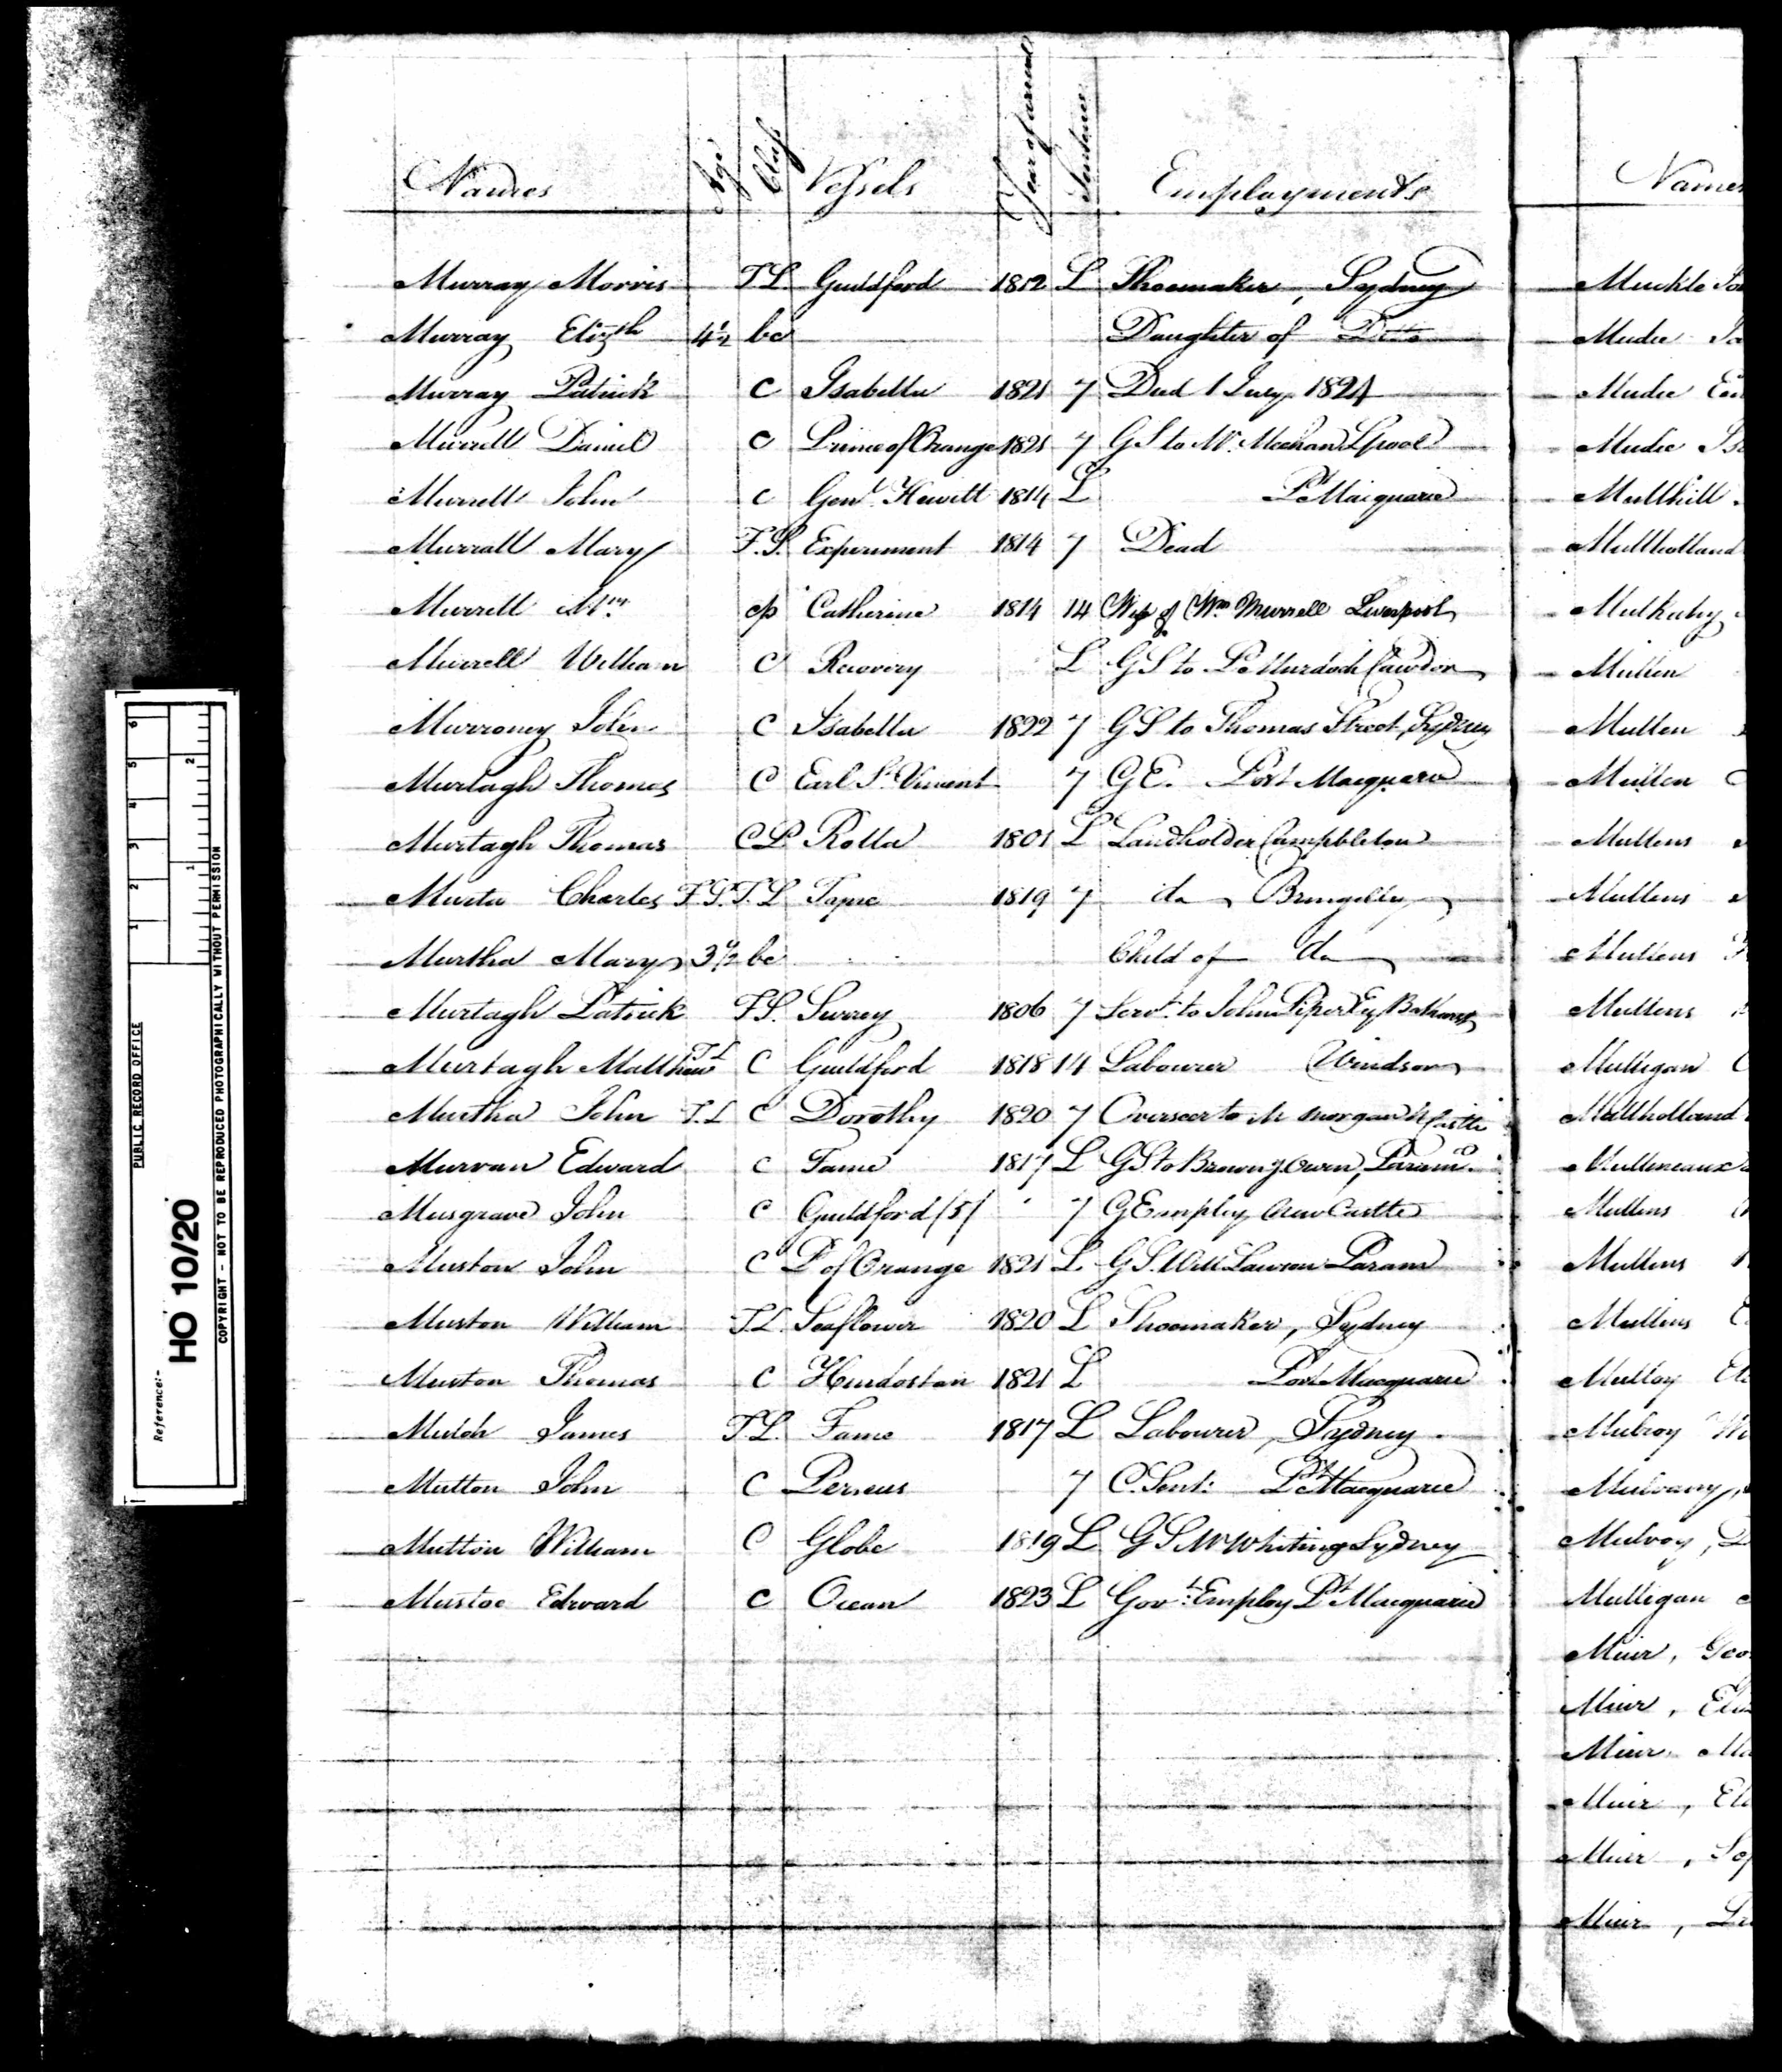 Names Age Class Vessels Year of arrival Sentence Employments
Murray Morris T.L Guildford 1812 L Shoemaker, Sydney
Murray Elizth 4½ bc Daughter of Ditto
Murray Patrick C Isabella 1821 7 Died 1 July 1824
Murrell Daniel C Prince of Orange 1821 7 GS to Mr. Meehan Lpool
Murrell John C Genl. Hewitt 1814 L Pt Macquarie
Murrall Mary F.S. Experiment 1814 7 Dead
Murrell Mrs Catherine 1814 14 Wife of Wm Murrell Liverpool
Murrell William C Recovery L GS to P. Murdoch Cawdor
Murroney John C Isabella 1822 7 GS to Thomas Street, Sydney
Murtagh Thomas C Earl St. Vincent 7 G.E. Port Macquarie
Murtagh Thomas C.P Rolla 1801 L Landholder Campbleton
Murta Charles T.L 1819 7 do Bringelly
Murtha Mary 3½ bc Child of do
Murtagh Patrick F.S. Surrey 1806 7 Servt. to John Piper Esq Bathurst
Murtagh Matthew TL C Guildford 1818 14 Labourer Windsor
Murtha John T.L C Dorothy 1820 7 Overseer to Mr Morgan NCastle
Murvan Edward C Fame 1817 L GS to Owen, Param
Musgrave John C Guildford (5) 7 G Employ New Castle
Muston John C P of Orange 1821 L G.S. Will Lawson Param
Muston William T.L. Seaflower 1820 L Shoemaker, Sydney
Muston Thomas C Hindostan 1821 L Port Macquarie
Mutch James T.L. Fame 1817 L Labourer, Sydney
Mutton John C Perseus 7 C. Sent: Pt Macquarie
Mutton William C Globe 1819 L GS Mr Whiting Sydney
Mustoe Edward C Ocean 1823 L Govt: Employ Pt Macquarie
Names
Muckle
Mudie
Mudie
Mudie
Mullhill
Mullholland
Mulkahy
Mullen
Mullen
Mullen
Mullens
Mullens
Mullens
Mullens
Mulligan
Mullholland
Mullineaux
Mullens
Mullens
Mullins
Mulloy
Mulroy
Mulvany,
Mulvoy,
Mulligan
Muir, Geo
Muir,
Muir
Muir,
Muir,
Muir,
PUBLIC RECORD OFFICE
Reference:-
HO 10/20
COPYRIGHT - NOT TO BE REPRODUCED PHOTOGRAPHICALLY WITHOUT PERMISSION
1 2 3 4 5 6
1 2